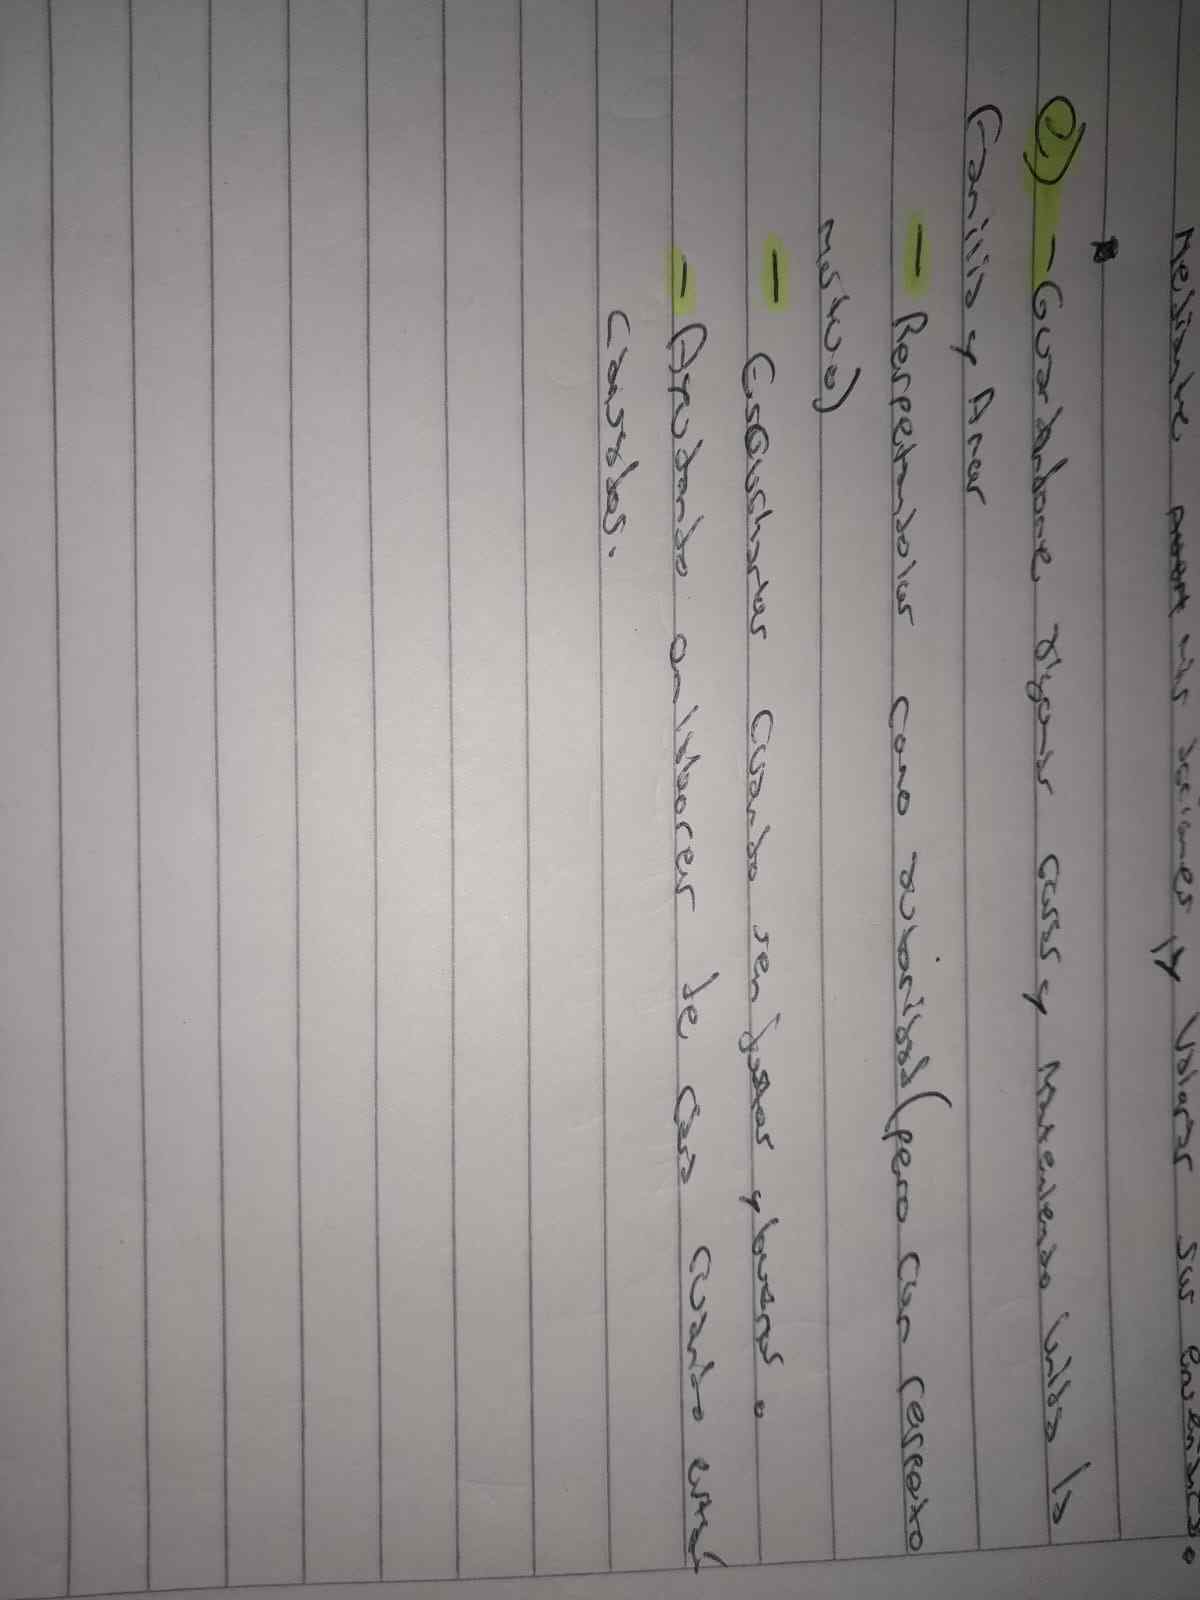 Mediante mis acciones y valorar sus enseñanzas.
e) - Guardandome siguiendo cassa y Manteniendo unida la
Familia y Amar
- Respetandolas como autoridad (pero con respeto
mutuo)
- Escucharlas cuando sen justas y buenas.
- Ayudando en labores de Casa cuando estal
cansadas.